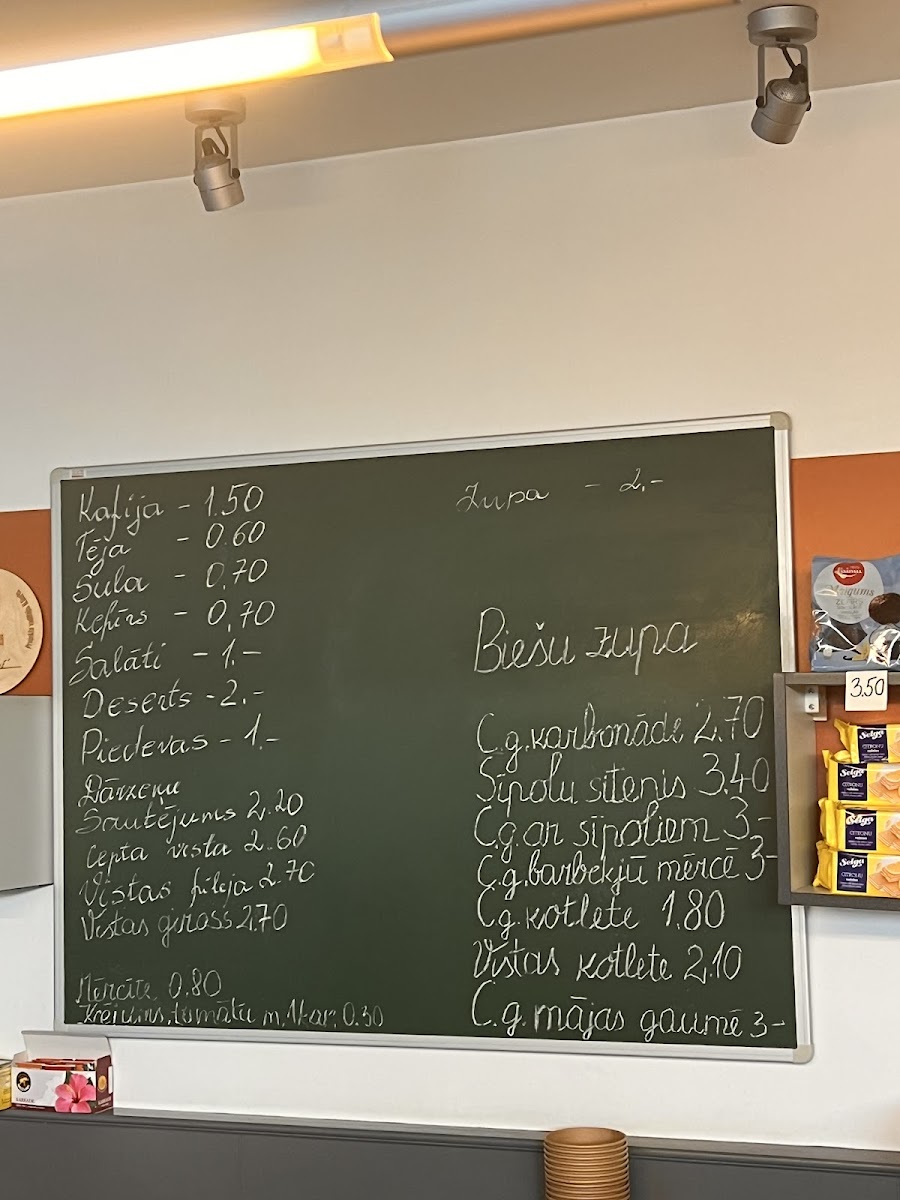 Kafija - 1.50
Tēja - 0.60
Sula - 0,70
Kefīrs - 0,70
Salāti - 1.-
Deserts - 2.-
Piedevas - 1.-
Dārzeņu
Sautējums 2.20
Cepta vista 2.60
Vistas fileja 2.70
Vistas giross 2.70
Mērcīte 0.80
Krējums, tomātu m. 1kar. 0.30
Zupa - 2.-
Biešu zupa
C.g. karbonāde 2.70
Sīpolu sitenis 3.40
C.g. ar sīpoliem 3.-
C.g. barbekjū mērcē 3-
C.g. kotlete 1.80
Vistas kotlete 2.10
C.g. mājas gaumē 3-
3.50
Selga
CITRONU
Selga
CITRONU
Selga
CITRONU
Selga
CITRONU